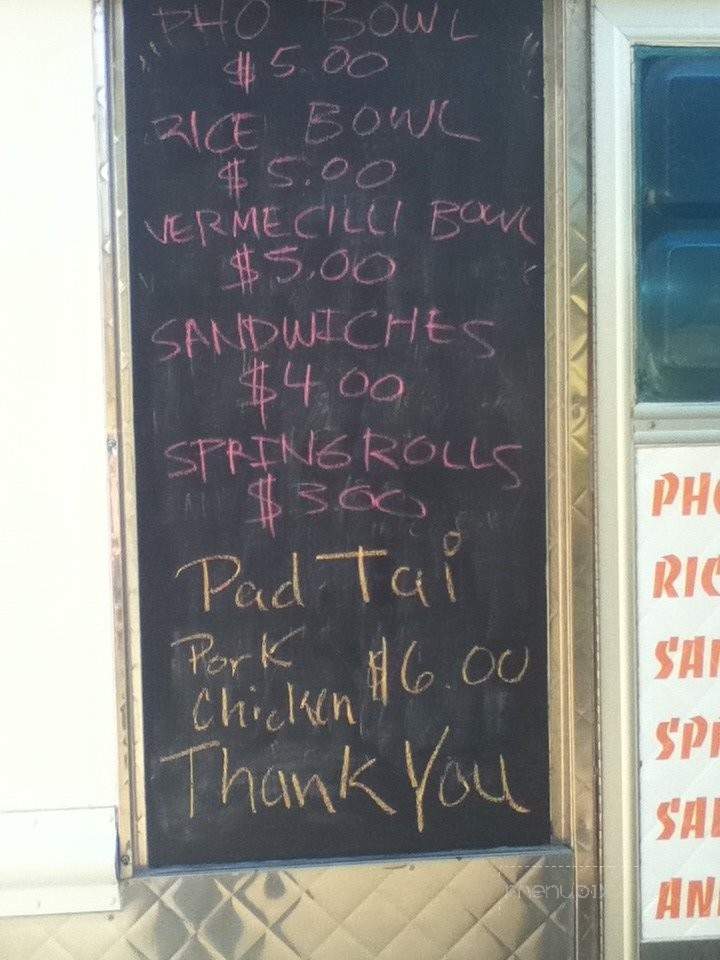 PHO BOWL
$5.00
RICE BOWL
$5.00
VERMECILLI BOWL
$5.00
SANDWICHES
$4 00
SPRING ROLLS
$300
Pad Tai
Pork
Chicken $6.00
Thank You
PHO
RIC
SAN
SPR
SA
AN
menupix